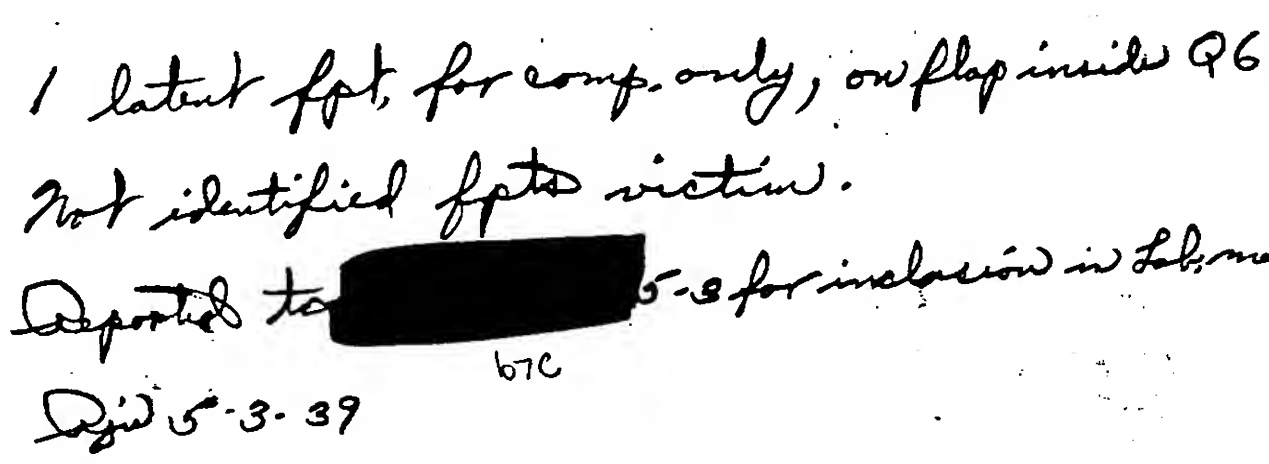 1 latent fpt, for comp. only, on flap inside Q6
Not identified fpts victim.
Reported to 5-3 for inclusion in Lab. me
b7C
5-3-39